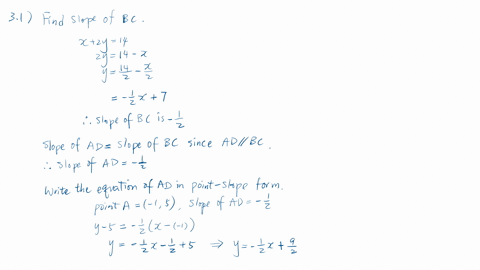 3.1) Find slope of BC.
x+2y=14
2y=14-x
y=14/2-x/2
=-1/2x+7
∴ slope of BC is -1/2
slope of AD = slope of BC since AD//BC.
∴ slope of AD=-1/2
Write the equation of AD in point-slope form.
point A=(-1,5), slope of AD=-1/2
y-5=-1/2(x-(-1))
y=-1/2x-1/2+5 ⇒ y=-1/2x+9/2